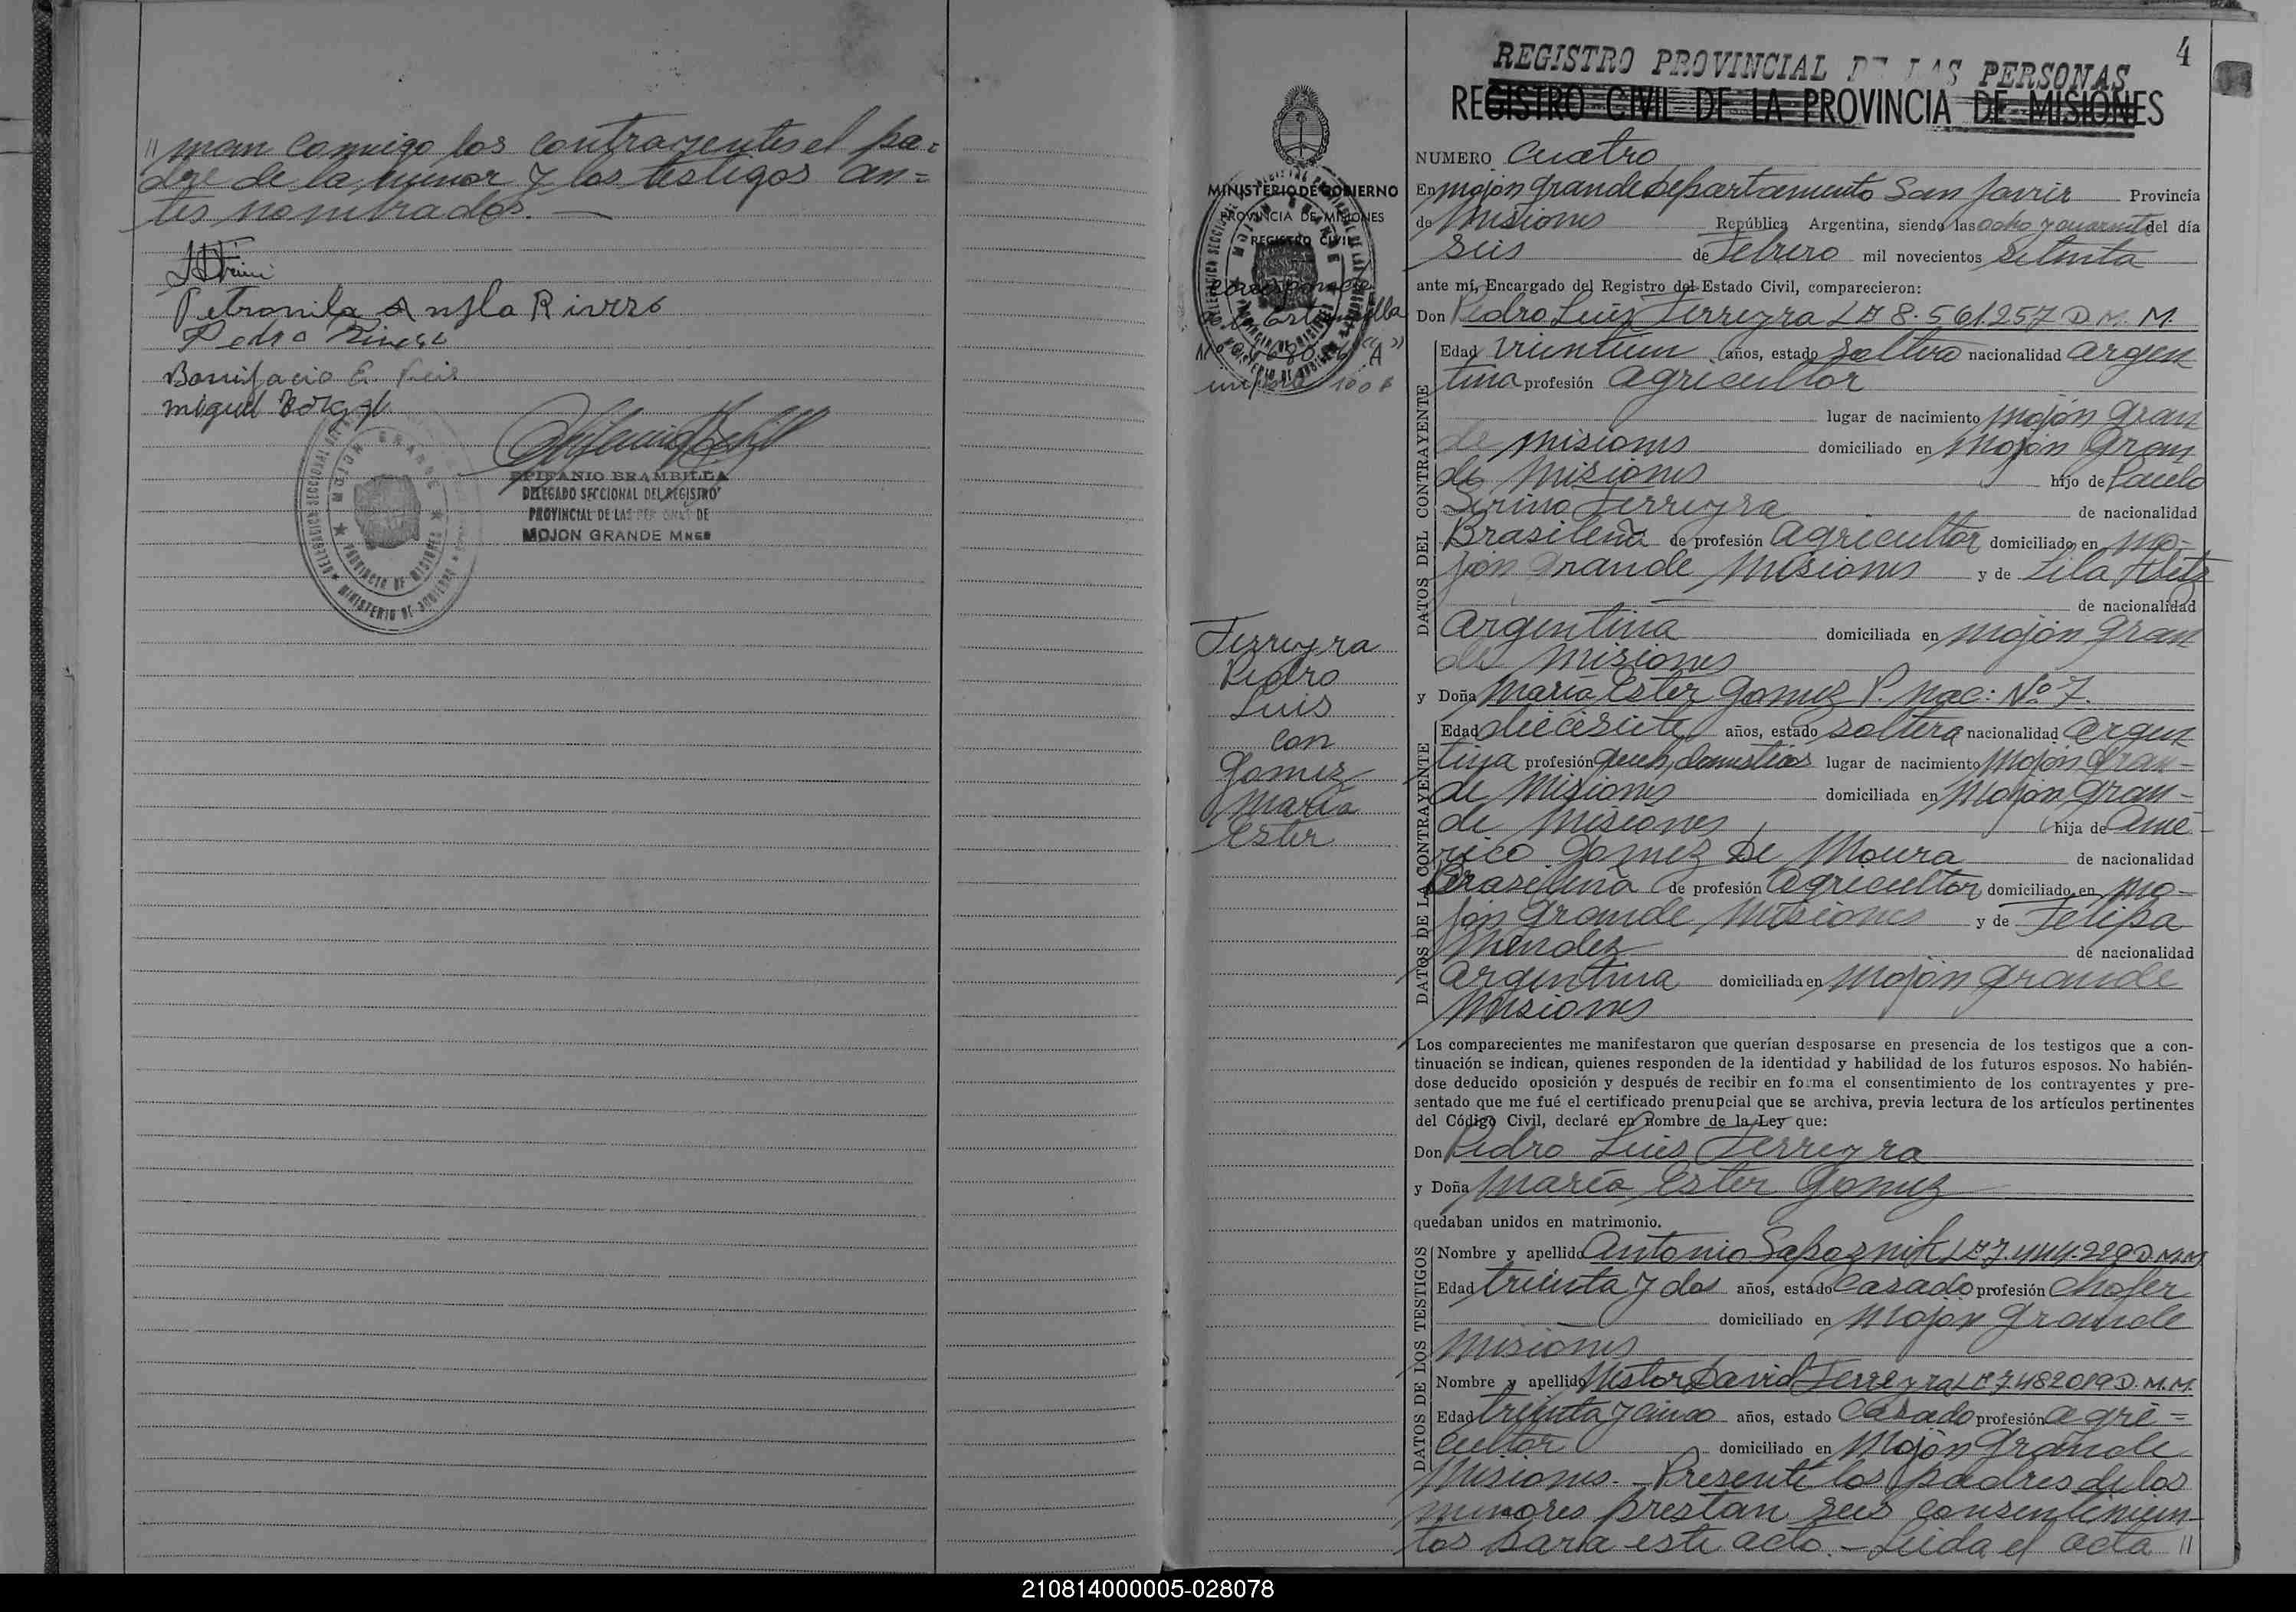 // man conmigo los contrayentes el pa=
dre de la menor y los testigos an=
tes nombrados.—
Petronila Angla Rivero
Pedro Rivero
Bonifacio
miguel
EPIFANIO BRAMBILLA
DELEGADO SECCIONAL DEL REGISTRO
PROVINCIAL DE LAS PERSONAS DE
MOJON GRANDE MNES
4
REGISTRO PROVINCIAL DE LAS PERSONAS
REGISTRO CIVIL DE LA PROVINCIA DE MISIONES
MINISTERIO DE GOBIERNO
PROVINCIA DE MISIONES
REGISTRO CIVIL
corresponde
Estampilla
"A"
importe 100 $
Ferreyra
Pedro
Luis
con
Gomez
María
Ester
NUMERO Cuatro
En Mojón Grande Departamento San Javier Provincia
de Misiones República Argentina, siendo las ocho y cuarenta del día
Seis de Febrero mil novecientos setenta
ante mí, Encargado del Registro del Estado Civil, comparecieron:
Don Pedro Luis Ferreyra LE 8.561.257 D.M. M.
DATOS DEL CONTRAYENTE
Edad veintiun años, estado soltero nacionalidad argen
tina profesión agricultor
lugar de nacimiento Mojón Gran
de Misiones domiciliado en Mojón Gran
de Misiones hijo de Paulo
Serino Ferreyra de nacionalidad
Brasileña de profesión agricultor domiciliado en Mo-
jón Grande Misiones y de Lila
de nacionalidad
argentina domiciliada en Mojón Gran
de Misiones
y Doña María Ester Gomez P. Nac: Nº 7.
DATOS DE LA CONTRAYENTE
Edad diecisiete años, estado soltera nacionalidad argen
tina profesión queh. domesticos lugar de nacimiento Mojón Gran-
de Misiones domiciliada en Mojon Gran-
de Misiones hija de Ame-
rico Gomez De Moura de nacionalidad
Brasileña de profesión agricultor domiciliado en Mo-
jón Grande Misiones y de Felipa
Mendez de nacionalidad
argentina domiciliada en Mojón Grande
Misiones
Los comparecientes me manifestaron que querían desposarse en presencia de los testigos que a con-
tinuación se indican, quienes responden de la identidad y habilidad de los futuros esposos. No habién-
dose deducido oposición y después de recibir en forma el consentimiento de los contrayentes y pre-
sentado que me fué el certificado prenupcial que se archiva, previa lectura de los artículos pertinentes
del Código Civil, declaré en nombre de la Ley que:
Don Pedro Luis Ferreyra
y Doña María Ester Gomez
quedaban unidos en matrimonio.
DATOS DE LOS TESTIGOS
Nombre y apellido Antonio Sapoznik LE 7.444.229 D.M.M
Edad treinta y dos años, estado Casado profesión Chofer
domiciliado en Mojon Grande
Misiones
Nombre y apellido Nestor David Ferreyra LE 7.482019 D.M.M.
Edad treinta y cinco años, estado Casado profesión agri=
cultor domiciliado en Mojón Grande
Misiones.— Presente los padres de los
menores prestan sus consentimien-
tos para este acto.— Leida el acta //
210814000005-028078